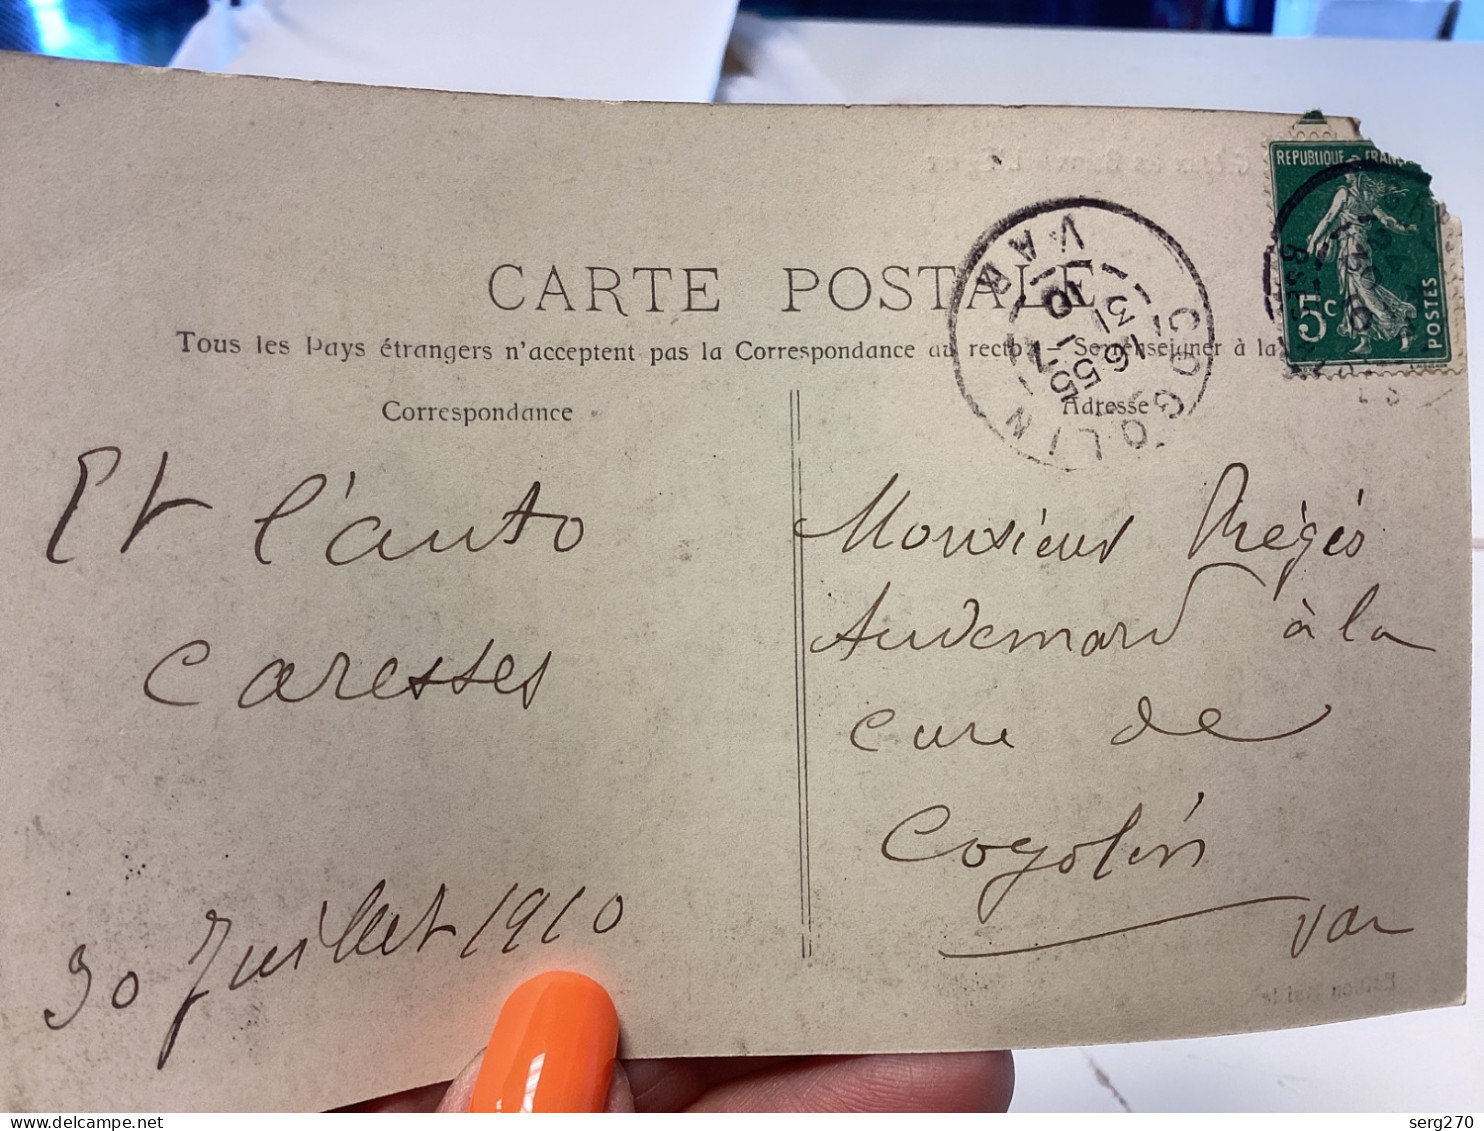 RÉPUBLIQUE FRANÇ
5c
POSTES
CARTE POSTALE
COGOLIN
VAR
6 55
31 - 7
10
Tous les Pays étrangers n'acceptent pas la Correspondance au recto. Se renseigner à la
Correspondance
Et l'auto
Caresses
30 Juillet 1910
Adresse
Monsieur Régis
Audemard à la
cure de
Cogolin
Var
Delcampe.net
serg270